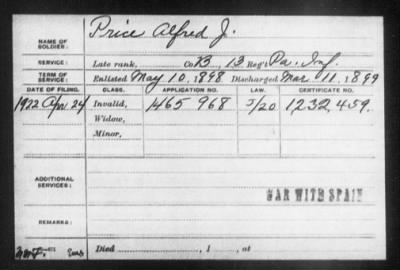 NAME OF SOLDIER: Price Alfred J.
SERVICE: Late rank, Co. B, 13 Reg't Pa. Inf.
TERM OF SERVICE: Enlisted May 10, 1898 Discharged Mar 11, 1899
DATE OF FILING. CLASS. APPLICATION NO. LAW. CERTIFICATE NO.
1922 Apr 24 Invalid, 1465 968 J/20 1,232,459.
Widow,
Minor,
ADDITIONAL SERVICES:
WAR WITH SPAIN
REMARKS:
Died , 1 , at